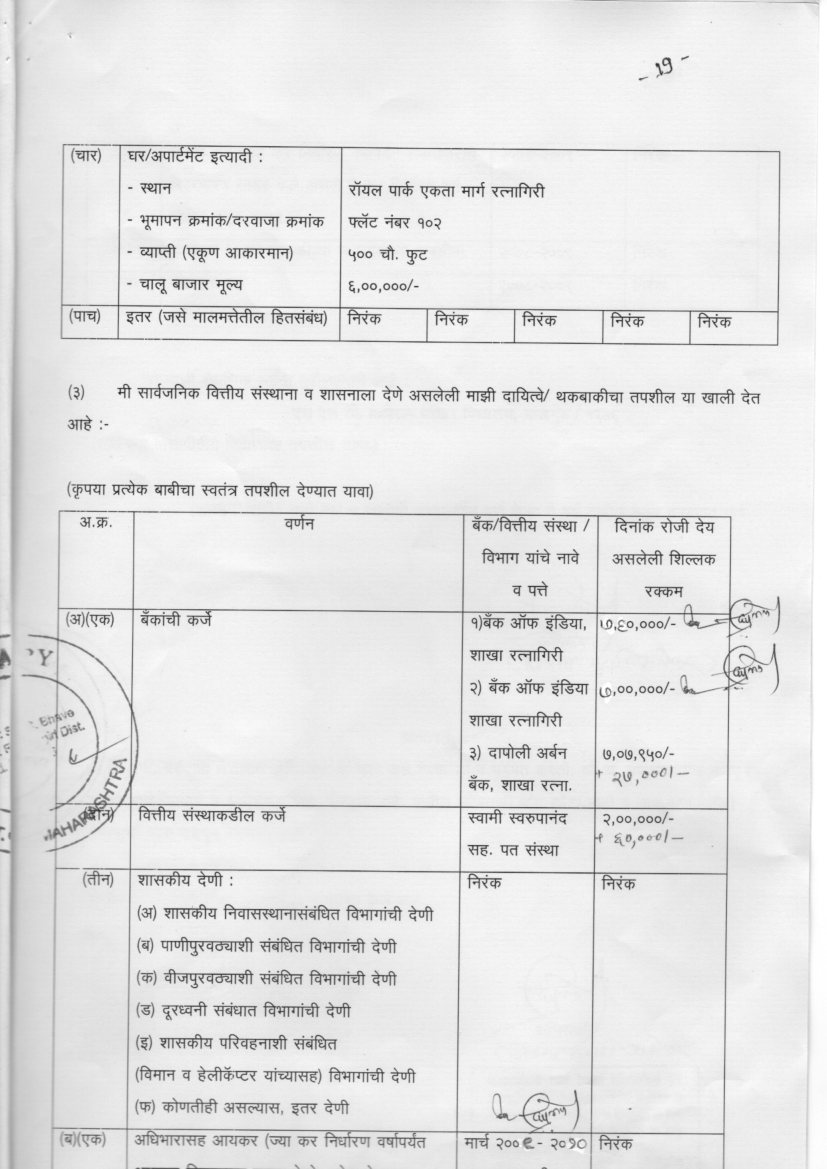 - 19 -
(चार) घर/अपार्टमेंट इत्यादी :
- स्थान रॉयल पार्क एकता मार्ग रत्नागिरी
- भूमापन क्रमांक/दरवाजा क्रमांक फ्लॅट नंबर १०२
- व्याप्ती (एकूण आकारमान) ५०० चौ. फुट
- चालू बाजार मूल्य ६,००,०००/-
(पाच) इतर (जसे मालमत्तेतील हितसंबंध) निरंक निरंक निरंक निरंक निरंक
(३) मी सार्वजनिक वित्तीय संस्थाना व शासनाला देणे असलेली माझी दायित्वे/ थकबाकीचा तपशील या खाली देत
आहे :-
(कृपया प्रत्येक बाबीचा स्वतंत्र तपशील देण्यात यावा)
अ.क्र. वर्णन बँक/वित्तीय संस्था / दिनांक रोजी देय
विभाग यांचे नावे असलेली शिल्लक
व पत्ते रक्कम
(अ)(एक) बँकांची कर्जे १)बँक ऑफ इंडिया, ७,६०,०००/-
शाखा रत्नागिरी
२) बँक ऑफ इंडिया ७,००,०००/-
शाखा रत्नागिरी
३) दापोली अर्बन ७,०७,९५०/-
बँक, शाखा रत्ना. + २७,०००/-
(दोन) वित्तीय संस्थाकडील कर्जे स्वामी स्वरुपानंद २,००,०००/-
सह. पत संस्था + ६०,०००/-
(तीन) शासकीय देणी : निरंक निरंक
(अ) शासकीय निवासस्थानासंबंधित विभागांची देणी
(ब) पाणीपुरवठ्याशी संबंधित विभागांची देणी
(क) वीजपुरवठ्याशी संबंधित विभागांची देणी
(ड) दूरध्वनी संबंधात विभागांची देणी
(इ) शासकीय परिवहनाशी संबंधित
(विमान व हेलीकॅप्टर यांच्यासह) विभागांची देणी
(फ) कोणतीही असल्यास, इतर देणी
(ब)(एक) अधिभारासह आयकर (ज्या कर निर्धारण वर्षापर्यंत मार्च २००९ - २०१० निरंक
Dist.
MAHARASHTRA